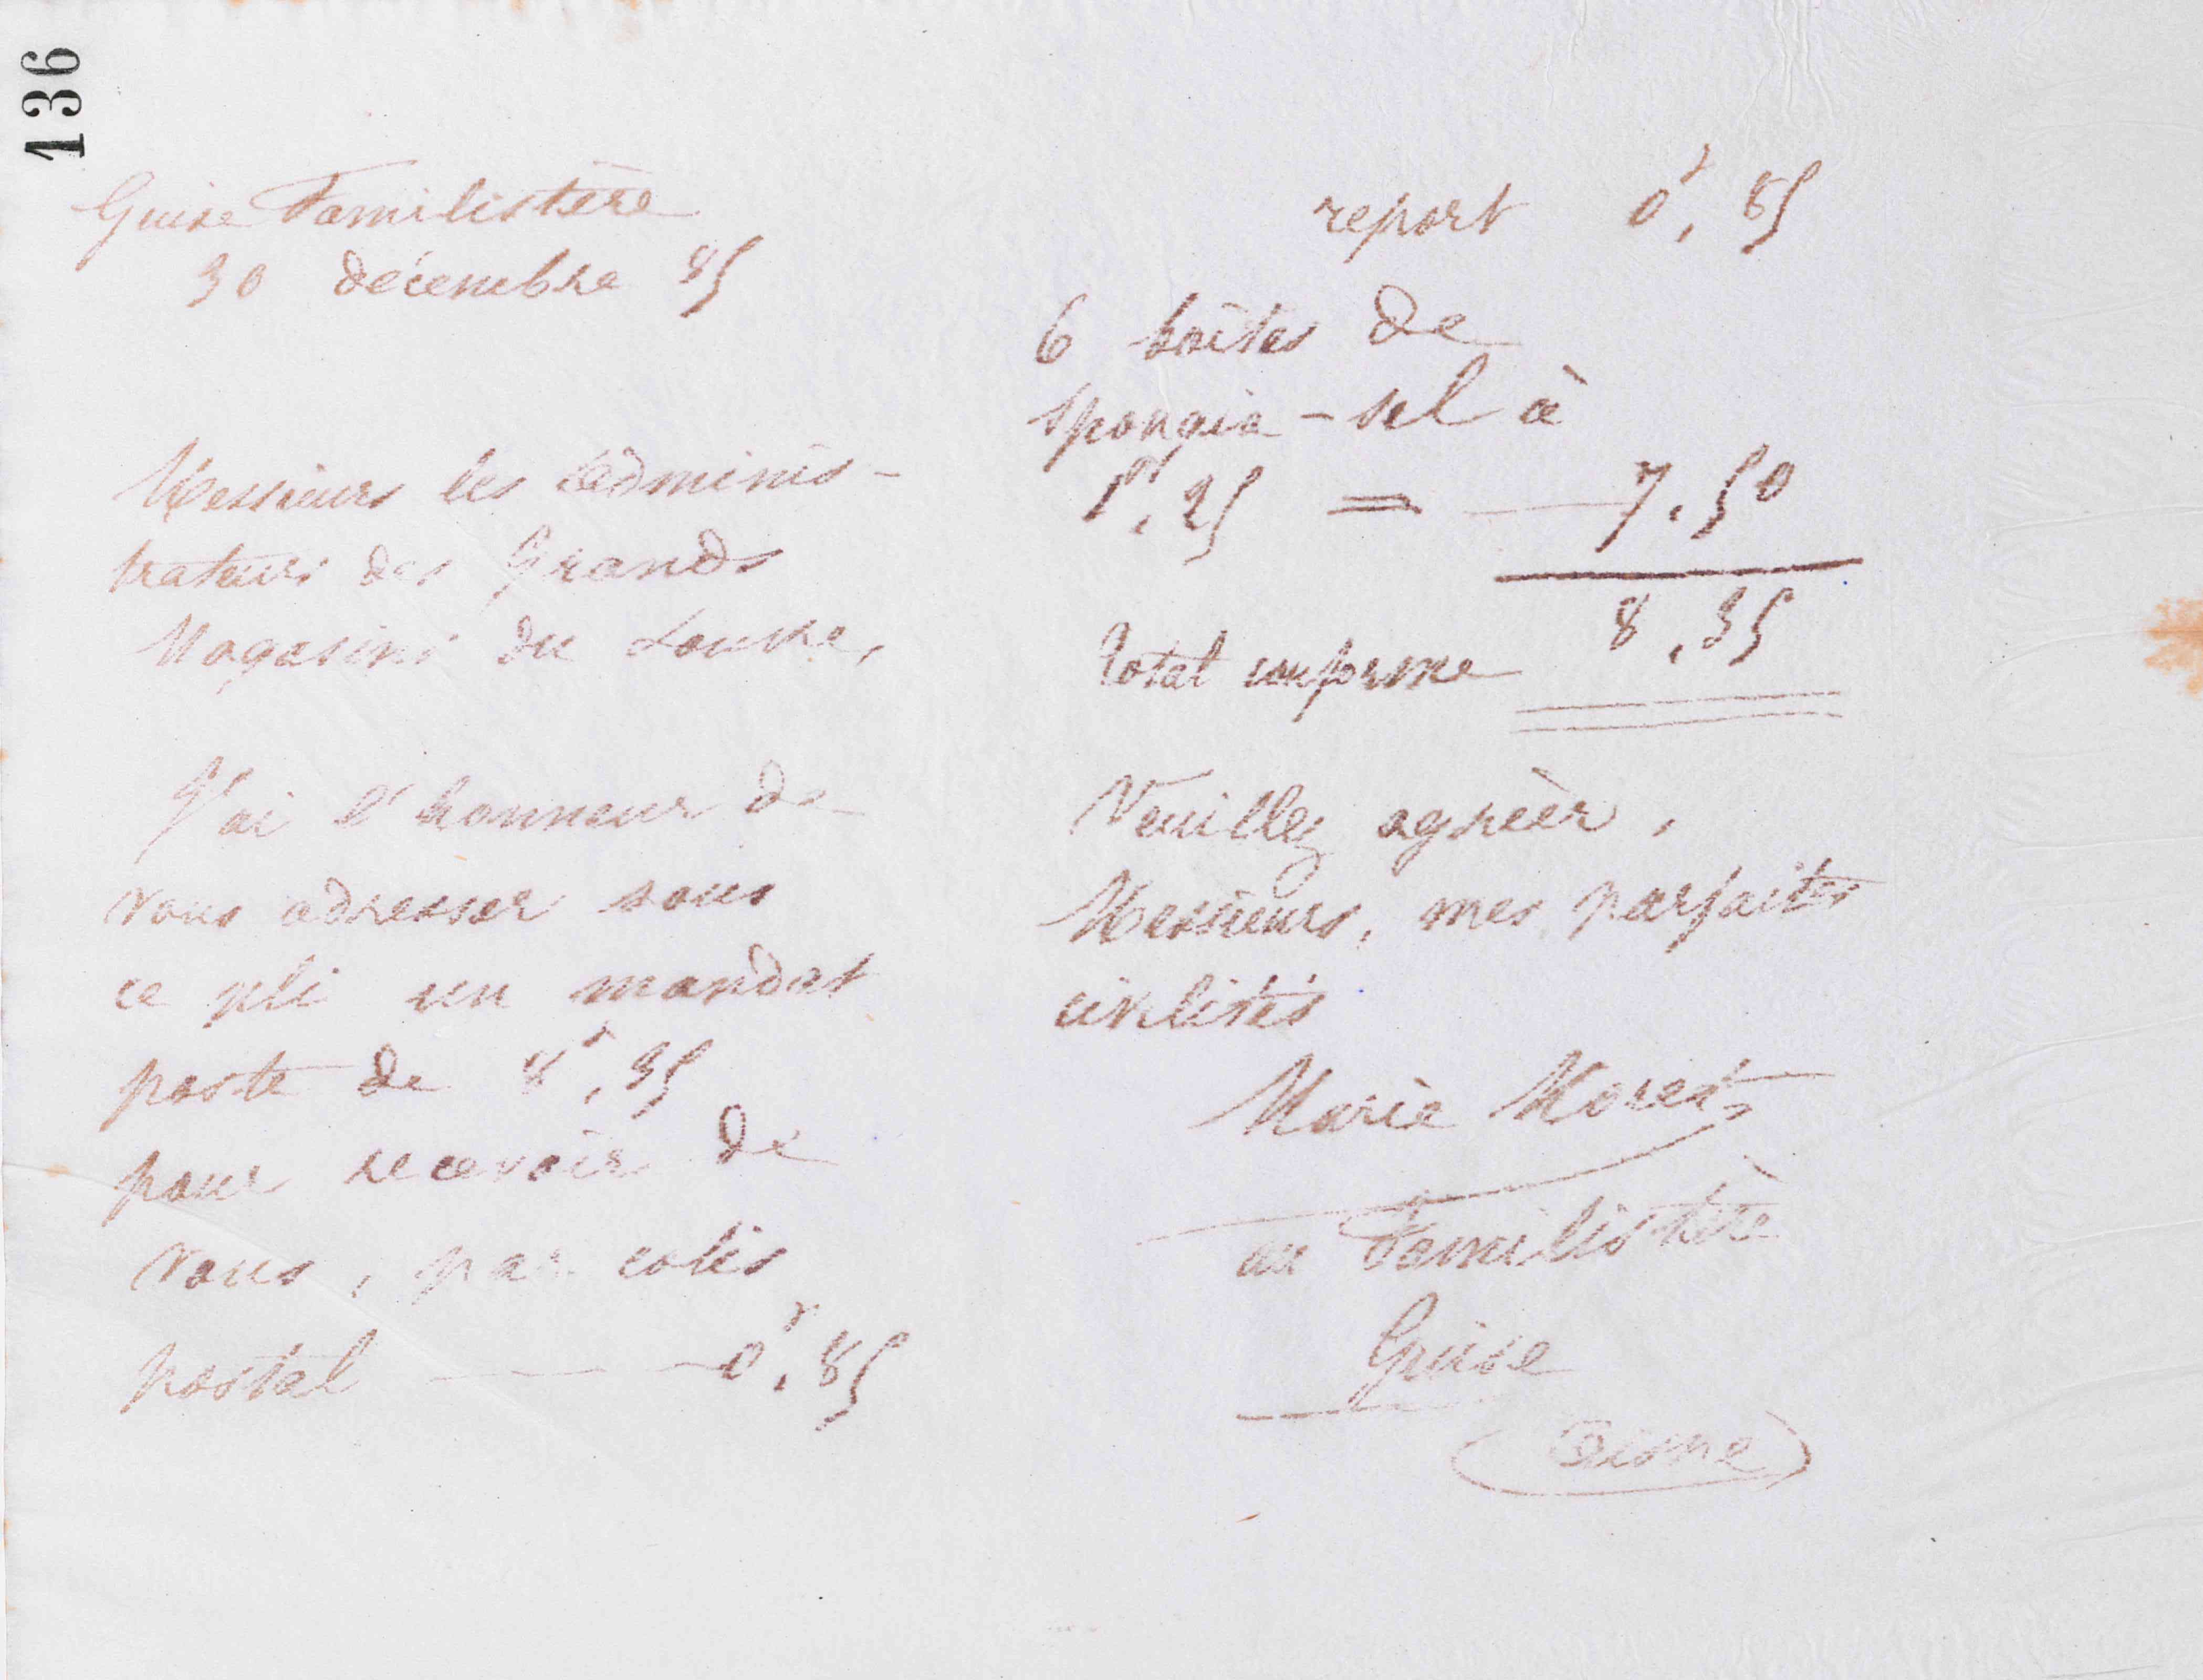 136
Guise Familistère
30 décembre 85
Messieurs les Adminis-
trateurs des Grands
Magasins du Louvre,
J'ai l'honneur de
vous adresser sous
ce pli un mandat
poste de 8f,35
pour recevoir de
vous, par colis
postal — 0f,85
report 0f,85
6 boîtes de
Spongia-sel à
1f,25 = — 7.50
8,35
Total conforme
Veuillez agréer,
Messieurs, mes parfaites
civilités
Marie Moret
au Familistère
Guise
(Aisne)